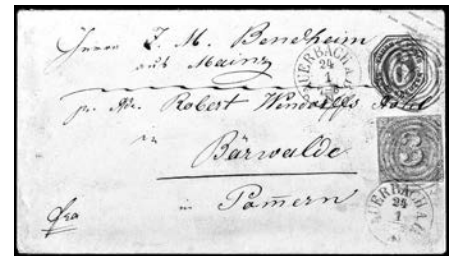 Herrn J. M. Bendheim
aus Mainz
pr. Adr. Robert Windolffs Hotel
in
Bärwalde
in Pom̄ern
fra
AUERBACH
24
1
3
AUERBACH
24
1